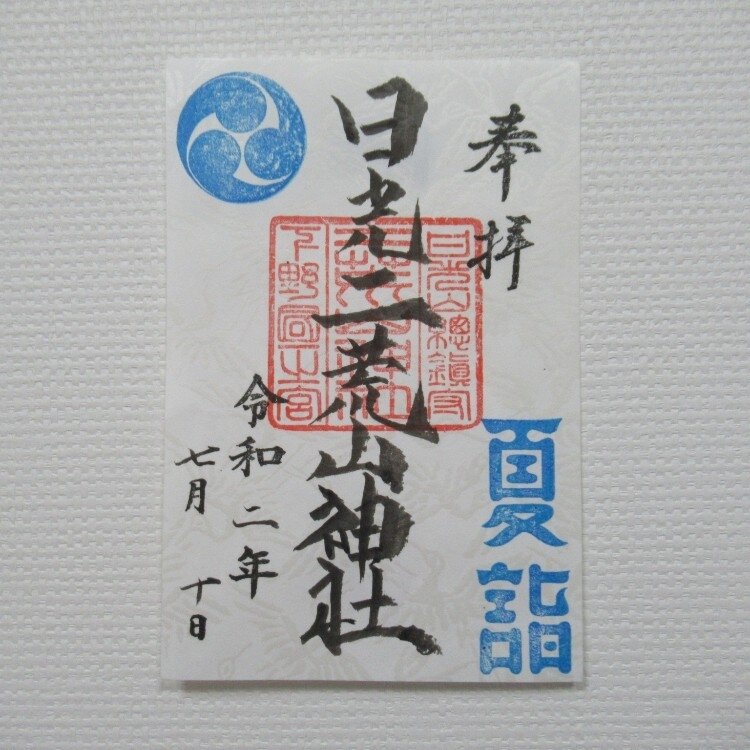 奉拝
夏詣
日光山總鎮守
二荒山神社
下野国一宮
日光二荒山神社
令和二年
七月十日